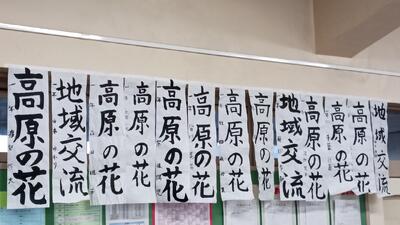 高原の花
地域交流
高原の花
高原の花
高原の花
高原の花
高原の花
高原の花
地域交流
高原の花
高原の花
高原の花
地域交流